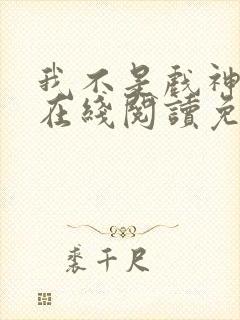 我不是戲神
在綫閱讀免
裘千尺